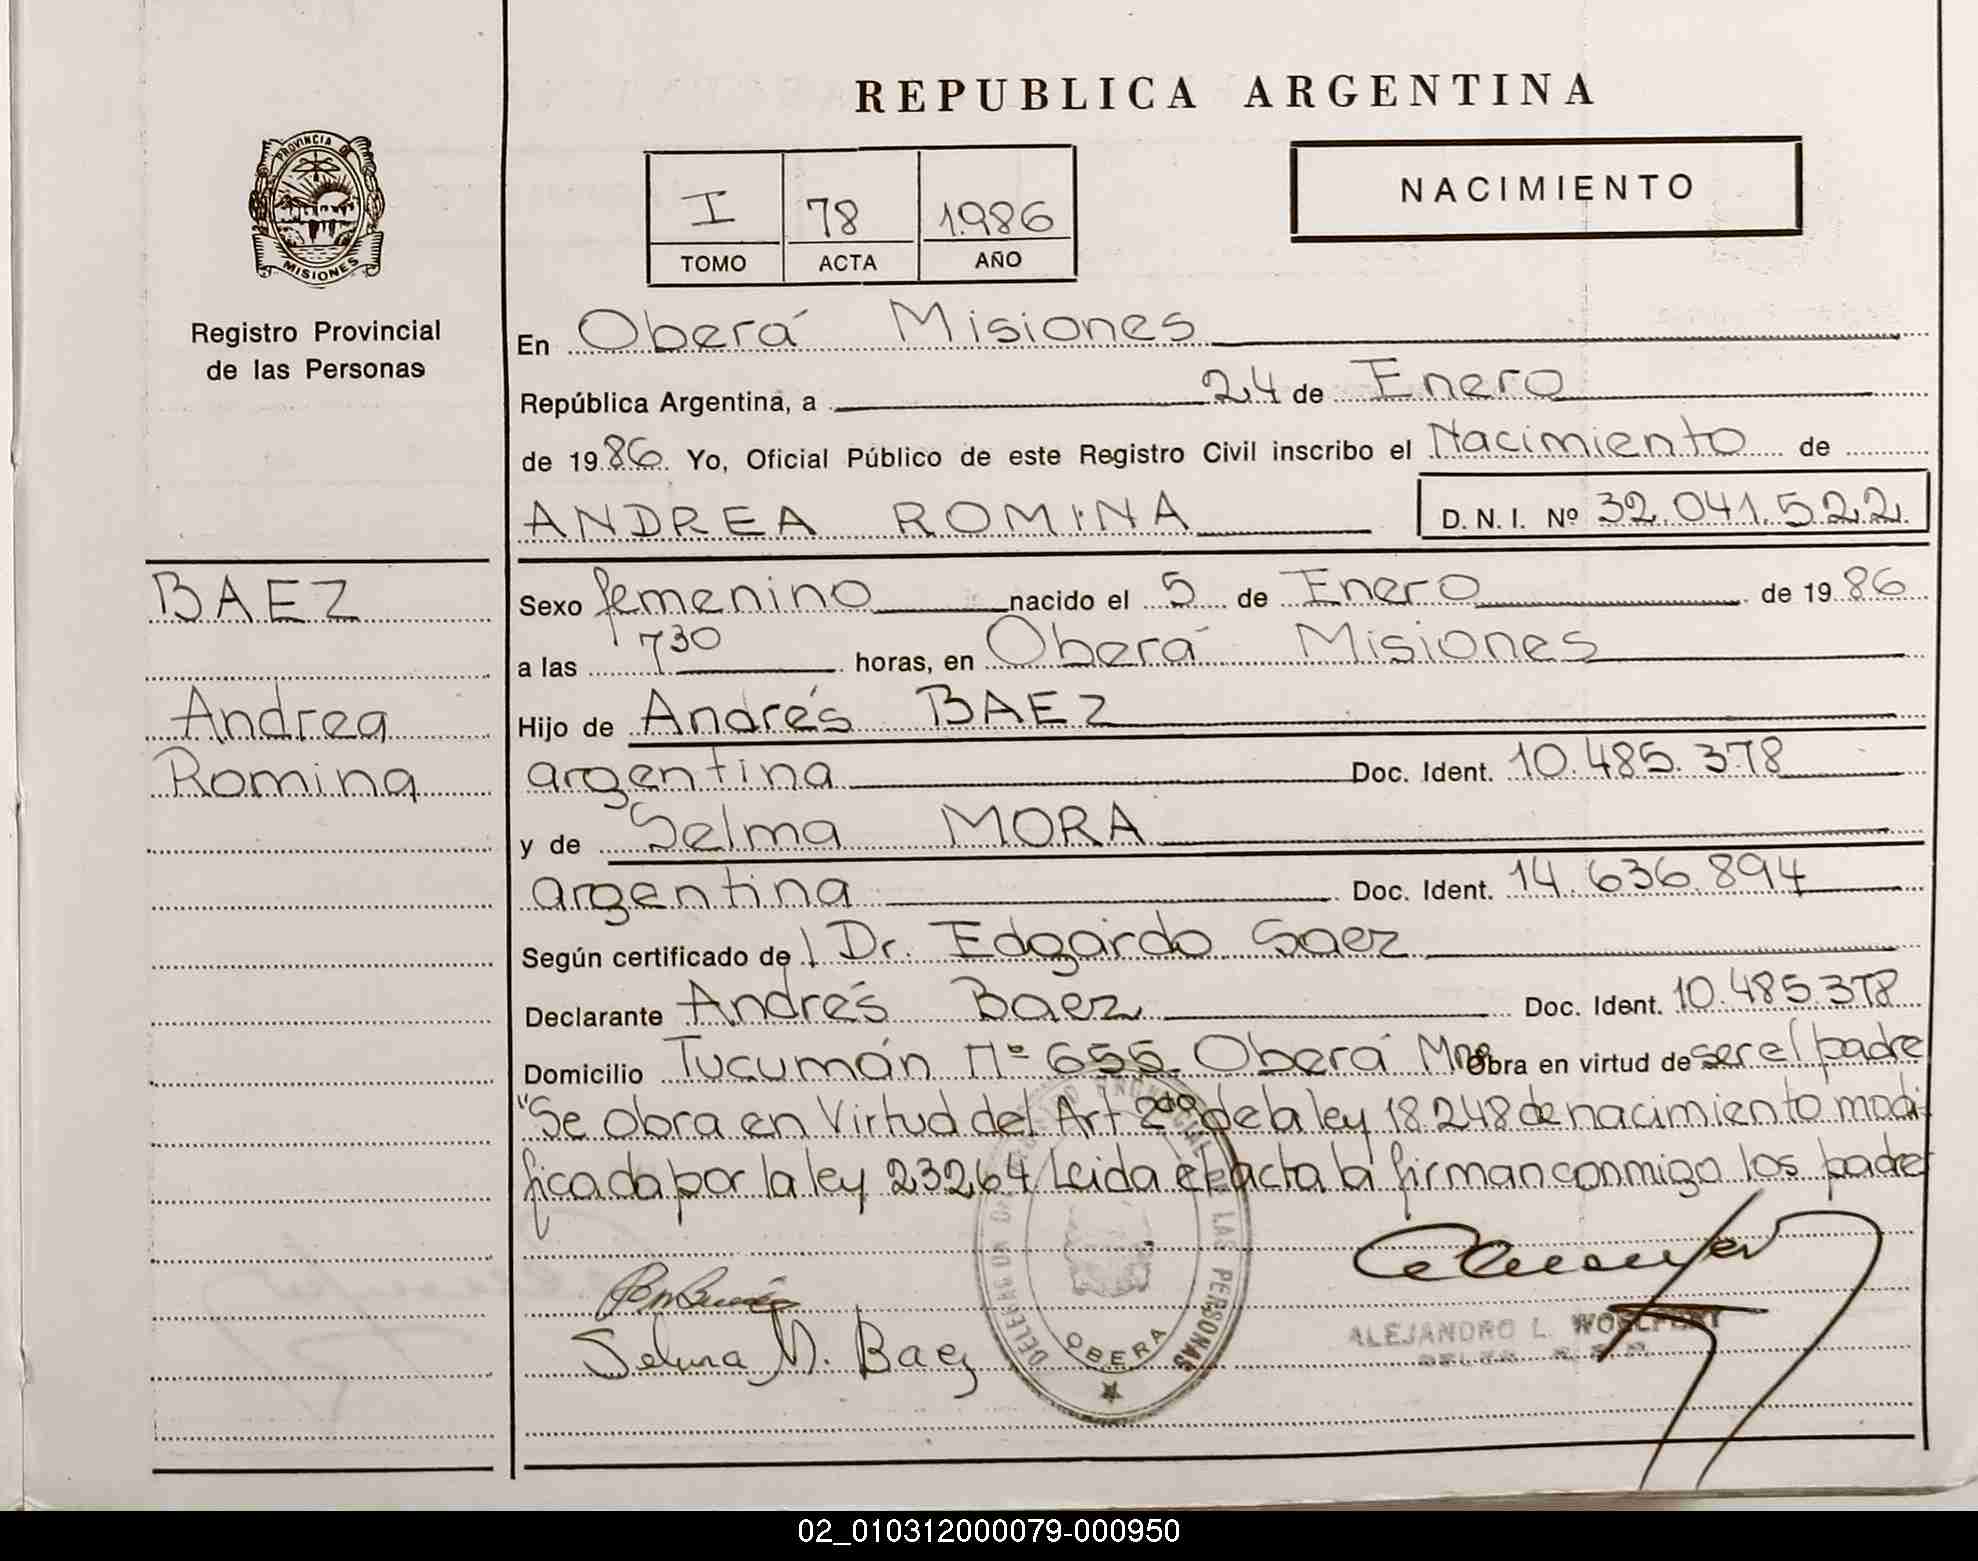 REPUBLICA ARGENTINA
PROVINCIA DE
MISIONES
Registro Provincial
de las Personas
I 78 1986
TOMO ACTA AÑO
NACIMIENTO
En Oberá Misiones
República Argentina, a 24 de Enero
de 1986 Yo, Oficial Público de este Registro Civil inscribo el Nacimiento de
ANDREA ROMINA D. N. I. Nº 32.041.522
BAEZ
Andrea
Romina
Sexo femenino nacido el 5 de Enero de 1986
a las 7 30 horas, en Oberá Misiones
Hijo de Andrés BAEZ
argentina Doc. Ident. 10.485.378
y de Selma MORA
argentina Doc. Ident. 14.636.894
Según certificado de l Dr. Edgardo Saez
Declarante Andrés Baez Doc. Ident. 10.485.378
Domicilio Tucumán Nº 655. Oberá Mnes Obra en virtud de ser el padre
"Se obra en Virtud del Art 2do de la ley 18248 de nacimiento modi-
ficada por la ley 23264 Leida el acta la firman conmigo los padre
Selma M. Baez
LAS PERSONAS
OBERA
ALEJANDRO L.
02_010312000079-000950